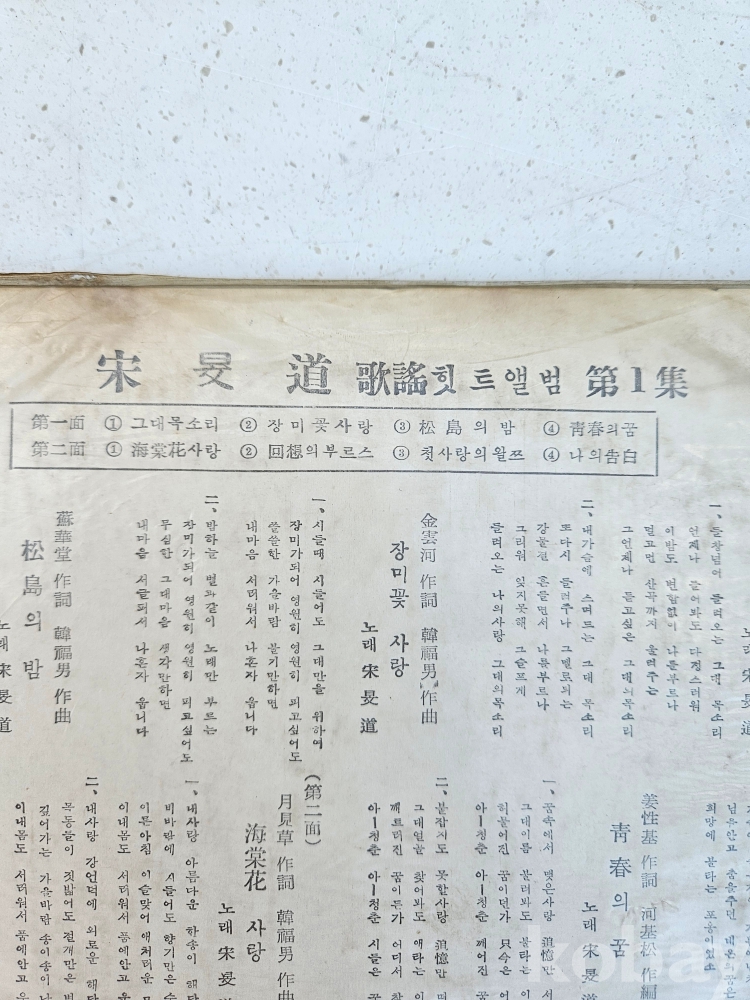 宋旻道 歌謠힛트앨범 第1集
第一面 ① 그대목소리 ② 장미꽃사랑 ③ 松島의밤 ④ 靑春의꿈
第二面 ① 海棠花사랑 ② 回想의부르스 ③ 첫사랑의왈쯔 ④ 나의告白
一、들창넘어 들려오는 그대 목소리
언제나 들어봐도 다정스러워
이밤도 변함없이 나를부르나
멀고먼 산곡까지 울려주는
그언제나 듣고싶은 그대의목소리
二、내가슴에 스며드는 그대 목소리
또다시 들려주나 그멜로듸는
강물결 흔들면서 나를부르나
그리워 잊지못해 그슬프게
들려오는 나의사랑 그대의목소리
金雲河 作詞 韓福男 作曲
장미꽃 사랑
노래 宋旻道
一、시들때 시들어도 그대만을 위하여
장미가되어 영원히 영원히 피고싶어도
쓸쓸한 가을바람 불기만하면
내마음 서러워서 나혼자 웁니다
二、밤하늘 별과같이 노래만 부르는
장미가되어 영원히 영원히 피고싶어도
무심한 그대마음 생각만하면
내마음 서글퍼서 나혼자 웁니다
蘇華堂 作詞 韓福男 作曲
松島의 밤
노래 宋旻道
姜性基 作詞 河基松 作編
靑春의 꿈
노래 宋旻道
一、꿈속에서 맺은사랑 追憶만
그대이름 불러봐도 불타는
허물어진 꿈이던가 只今은
아ー청춘 아ー청춘 깨어진 꿈
二、붙잡지도 못할사랑 追憶만
그대얼굴 찾어봐도 애타는
깨트러진 꿈이든가 어디서
아ー청춘 아ー청춘 시들은
(第二面)
月見草 作詞 韓福男 作曲
海棠花 사랑
노래 宋旻道
一、내사랑 아름다운 한송이
비바람에 시들어도 향기만은
이른아침 이슬맞어 애처러운
이내몸도 서러워서 품에안고
二、내사랑 강언덕에 외로운
목동들이 짓밟어도 절개만은
깊어가는 가을바람 송이송이
이내몸도 서러워서 품에안고
kobay